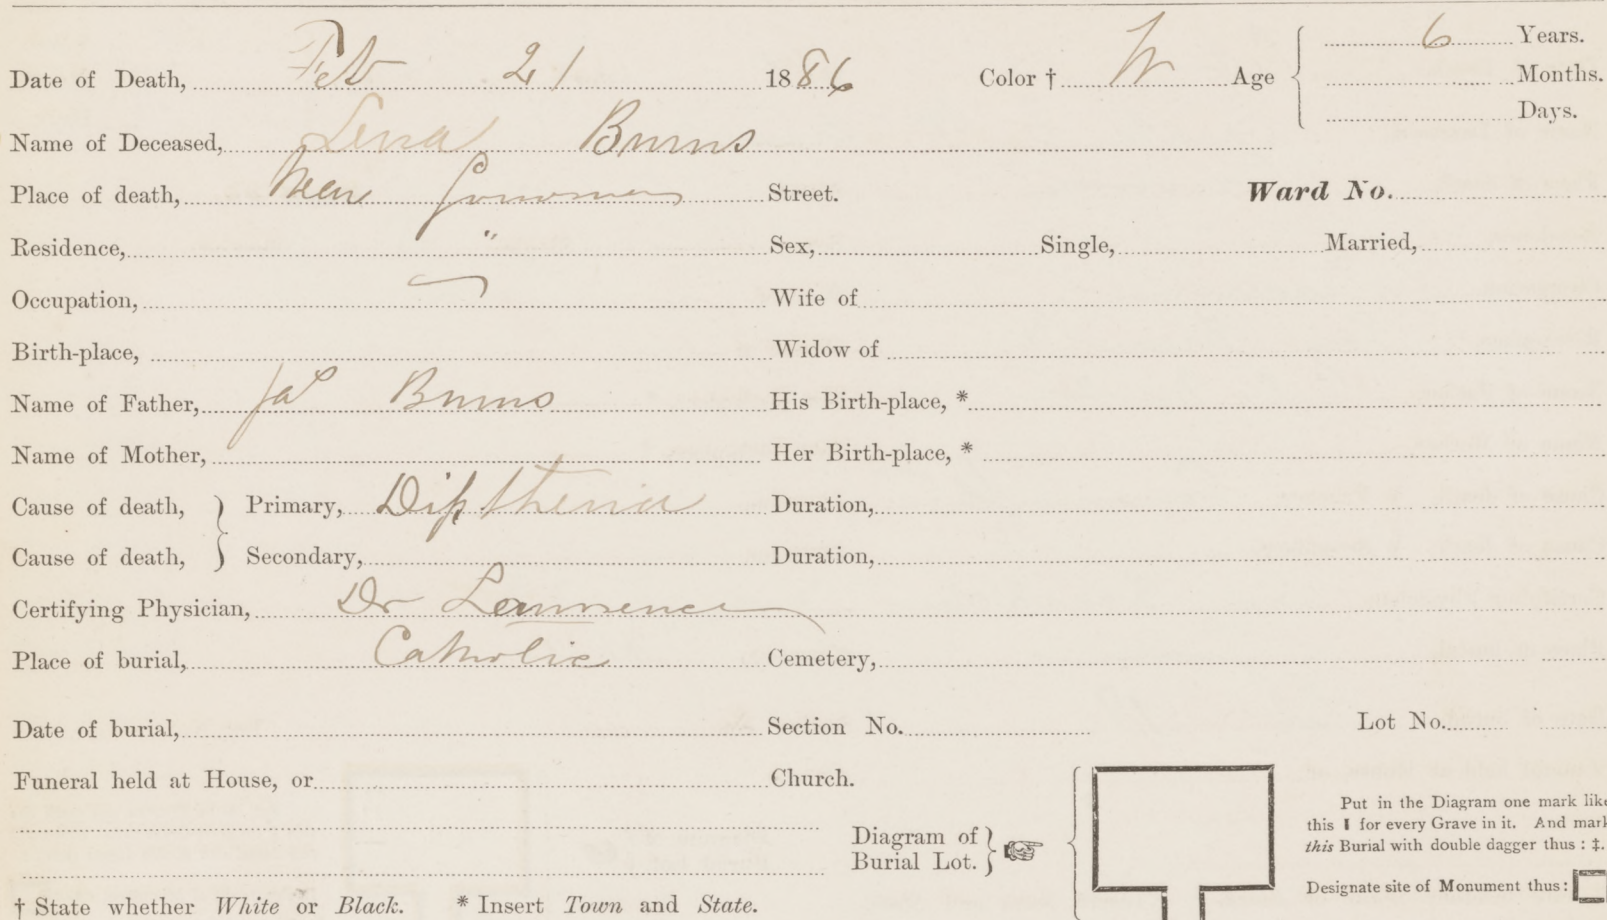 Date of Death, Feb 21 1886 Color † W Age 6 Years.
Months.
Days.
Name of Deceased, Lena Burns
Place of death, Near Street. Ward No.
Residence, " Sex, Single, Married,
Occupation, Wife of
Birth-place, Widow of
Name of Father, Jas Burns His Birth-place, *
Name of Mother, Her Birth-place, *
Cause of death, Primary, Diptheria Duration,
Cause of death, Secondary, Duration,
Certifying Physician, Dr Lawrence
Place of burial, Catholic Cemetery,
Date of burial, Section No. Lot No.
Funeral held at House, or Church.
Diagram of
Burial Lot.
Put in the Diagram one mark like
this ❚ for every Grave in it. And mark
this Burial with double dagger thus : ‡.
Designate site of Monument thus :
† State whether White or Black. * Insert Town and State.